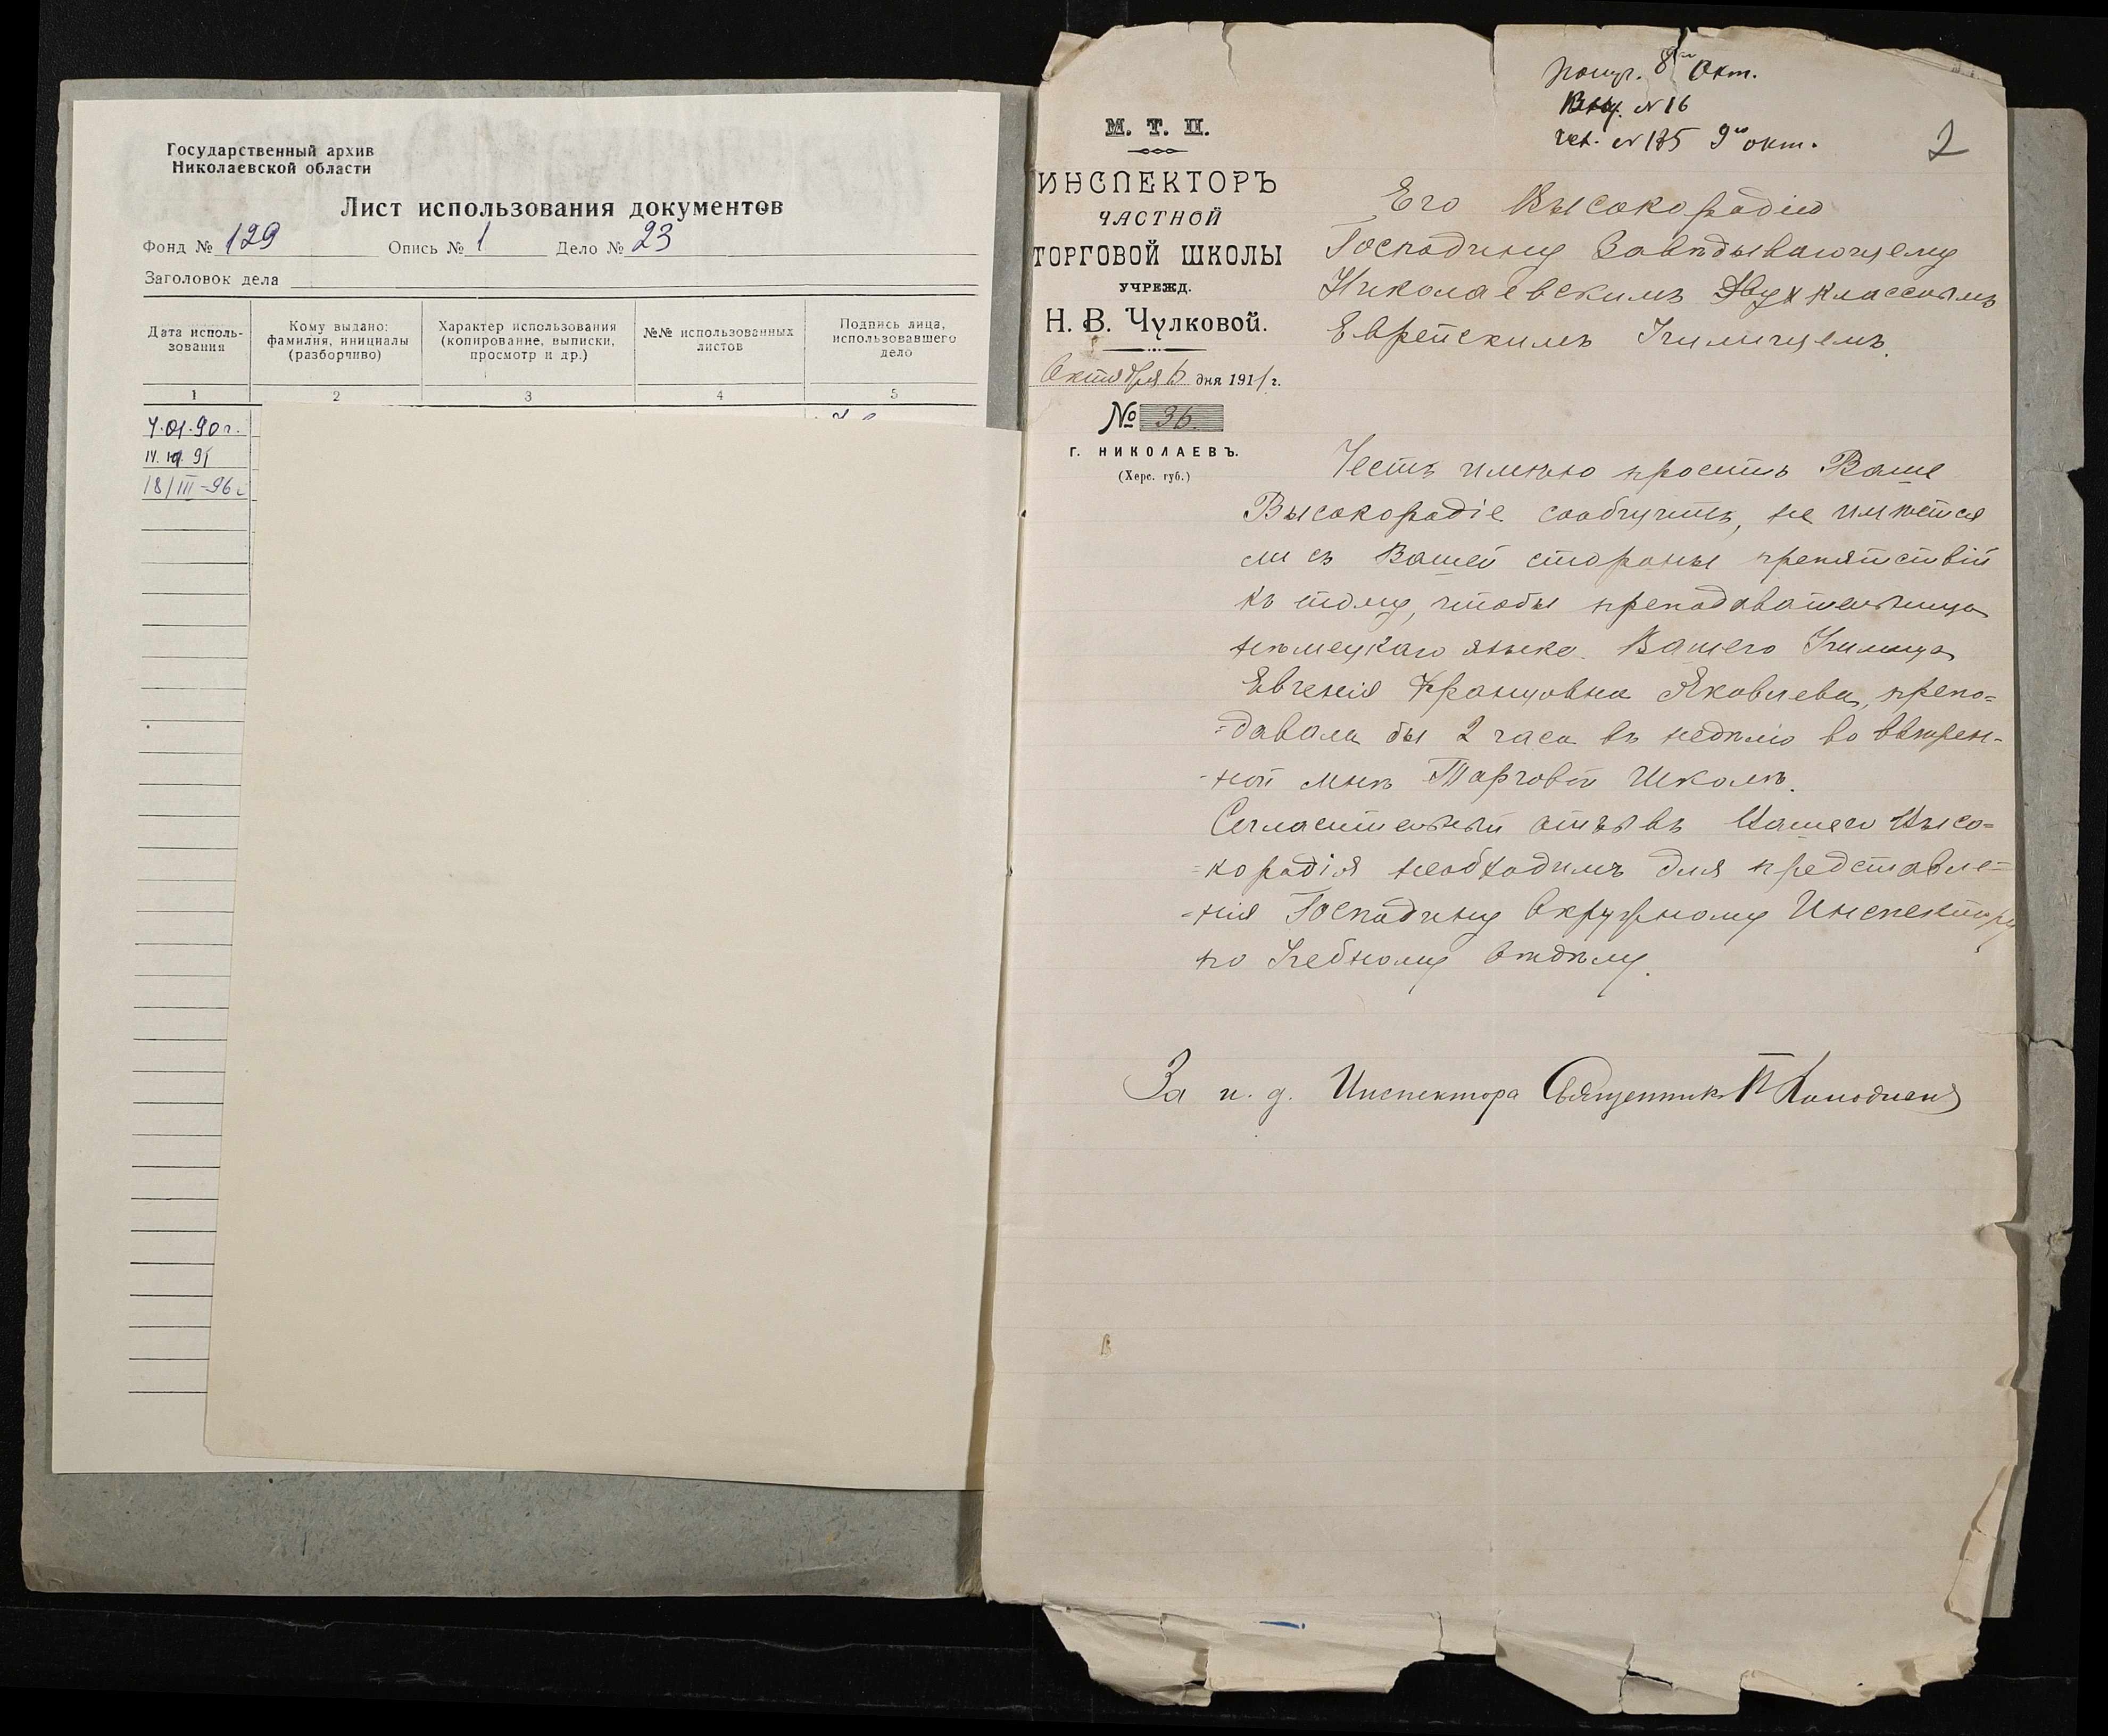 Государственный архив
Николаевской области
Лист использования документов
Фонд № 129 Опись № 1 Дело № 23
Заголовок дела
Дата исполь-
зования
Кому выдано:
фамилия, инициалы
(разборчиво)
Характер использования
(копирование, выписки,
просмотр и др.)
№№ использованных
листов
Подпись лица,
использовавшего
дело
1 2 3 4 5
4.01.90г.
18/III-96г
получ. 8го Окт.
Вход. №16
исх. №135 9го окт.
2
М. Т. П.
ИНСПЕКТОРЪ
ЧАСТНОЙ
ТОРГОВОЙ ШКОЛЫ
УЧРЕЖД.
Н. В. Чулковой.
Октября 6 дня 1911 г.
№ 36.
Г. НИКОЛАЕВЪ.
(Херс. губ.)
Его Высокородію
Господину Завѣдывающему
Николаевскимъ Двухкласснымъ
Еврейскимъ Училищемъ.
Честь имѣю просить Ваше
Высокородіе сообщить, не имѣется
ли съ Вашей стороны препятствій
къ тому, чтобы преподавательница
нѣмецкаго языка Вашего Училища
Евгенія Францовна Яковлева, препо=
=давала бы 2 часа въ недѣлю во ввѣрен-
-ной мнѣ Торговой Школѣ.
Согласительный отзывъ Вашего Высо=
=кородія необходимъ для представле=
=нія Господину Окружному Инспектору
по Учебному Отдѣлу.
За и. д. Инспектора Священникъ П